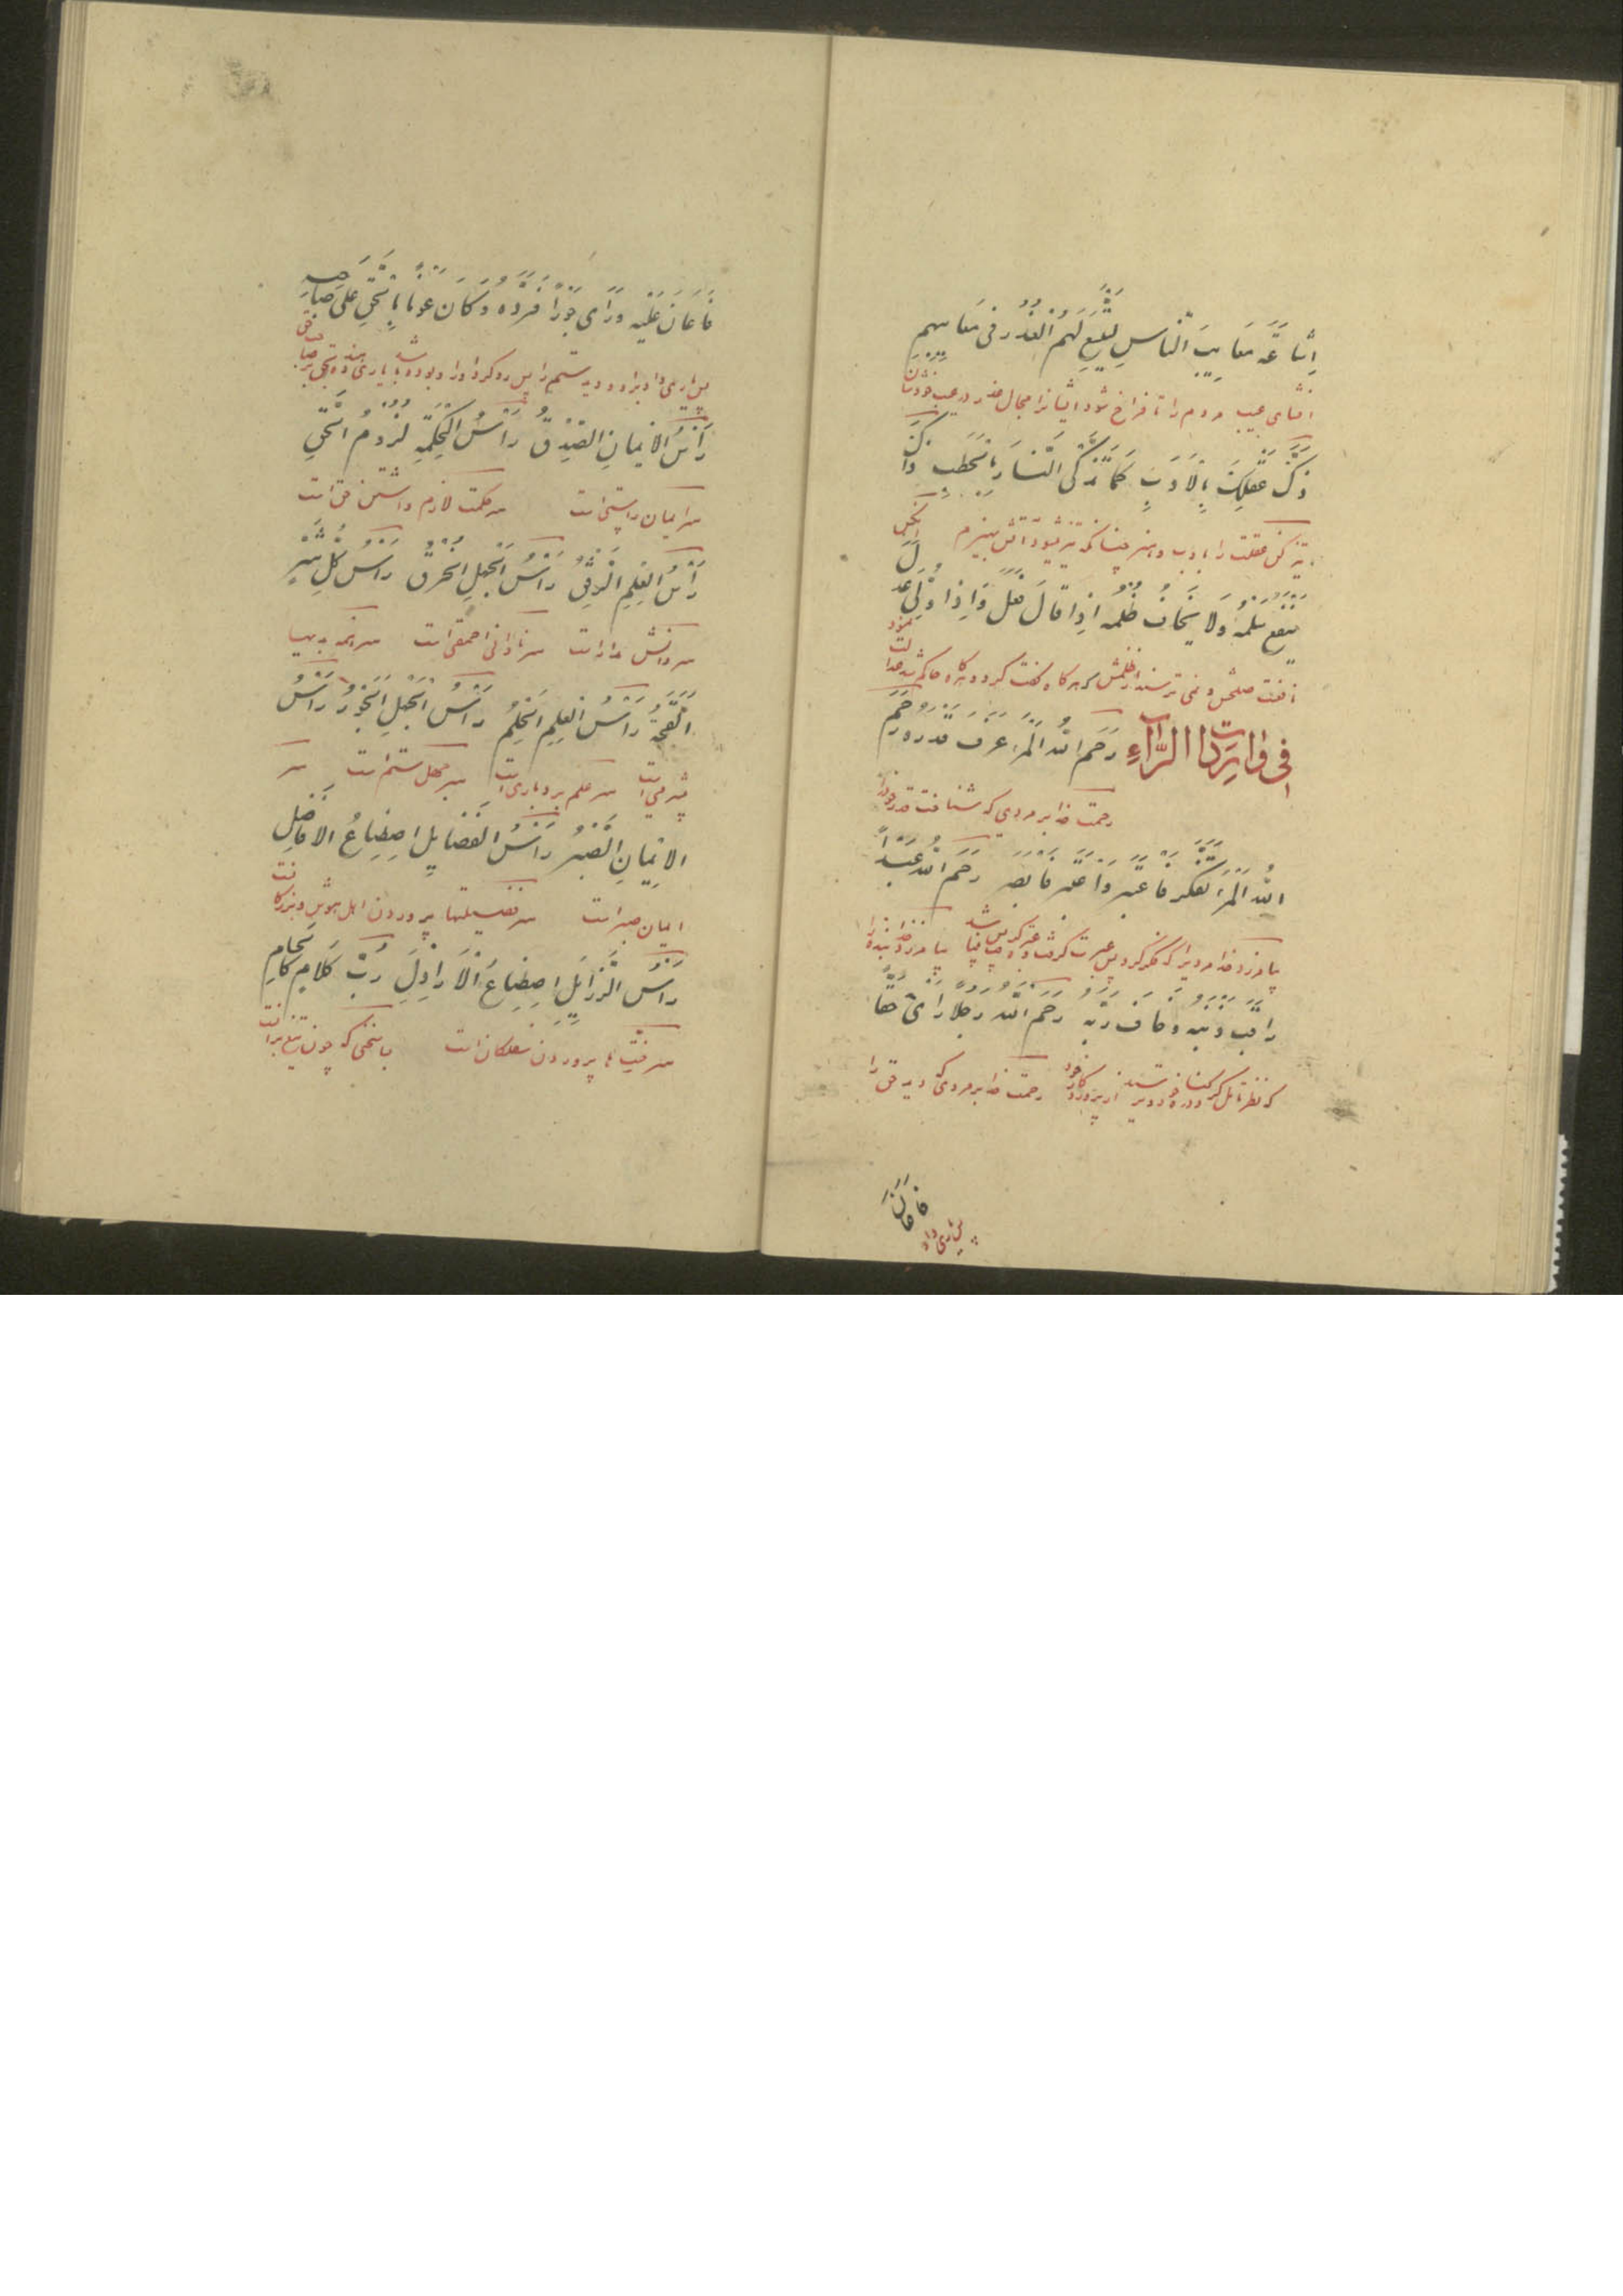 اِشَاعَةِ مَعَایِبَ النّاسِ لِیَتَّسِعَ لَهُمُ العُذْرُ فی مَعَایبهم
افشای عیب مردم را تا فراخ شود ایشانرا مجال عذر در عیب خودشان
ذَکِّ عَقْلَکَ بِالاَدَبِ کَمَا تُذَکَّی النَّارُ بِالحَطَبِ
تیز کن عقلت را بادب و هنر چنانکه تیز میشود آتش بهیزم
یَنْفَعُ سِلْمُهُ وَلَا یُخَافُ ظُلْمُهُ اِذا قالَ فَعَلَ وَاِذا وَلِیَ عَدَلَ
صلحش و نمی ترسند از ظلمش هرگاه گفت کرد و هرگاه حاکم شد
فی الرَّآءِ رَحِمَ اللّهُ امْرَءً عَرَفَ قَدْرَهُ رَحِمَ
رحمت خدا بر مردی که شناخت قدر خود را
اللّهُ امْرَءً تَفَکَّرَ فَاعْتَبَرَ وَاعْتَبَرَ فَاَبْصَرَ رَحِمَ اللّهُ عَبْداً
بیامرزد خدا مردیرا که فکر کرد پس عبرت گرفت بیامرزد خدا بنده را
رَاقَبَ ذَنْبَهُ وَخَافَ رَبَّهُ رَحِمَ اللّهُ رَجُلاً رَاَیٰ حَقّاً
رحمت خدا بر مردی که دید حق را
فَاَعَانَ
پس یاری داد
فَاَعَانَ عَلَیْهِ وَرَاَی جَوْرًا فَرَدَّهُ وَکَانَ عَوْنًا بِالْحَقِّ عَلیٰ صَاحِبِه
پس یاری داد برا و دید ستم را پس رد کرد اورا و بوده باشد
رَأْسُ الاِیْمَانِ الصِّدْقُ رَأْسُ الْحِکْمَةِ لُزُومُ الْحَقِّ
سر ایمان راستی است سر حکمت لازم داشتن حق است
رَأْسُ الْعِلْمِ الرِّفْقُ رَأْسُ الْجَهْلِ الْخُرْقُ رَأْسُ کُلِّ شَرٍّ
سر دانش مداراست سر نادانی احمقی است سر همه بدیها
الْقِحَةُ رَأْسُ الْعِلْمِ الْحِلْمُ رَأْسُ الْجَهْلِ الْجَوْرُ رَأْسُ
بیشرمی است سر علم بردباری است سر جهل ستم است سر
الاِیْمَانِ الصَّبْرُ رَأْسُ الْفَضَایِلِ اصْطِنَاعُ الاَفَاضِلِ
ایمان صبر است سر فضیلتها پروردن اهل هوش و بزرگانست
رَأْسُ الرَّذَایِلِ اصْطِنَاعُ الْاَرَاذِلِ رُبَّ کَلَامٍ کَالْحُسَامِ
پروردن سفلگان است بسا سخنی که چون تیغ برانست